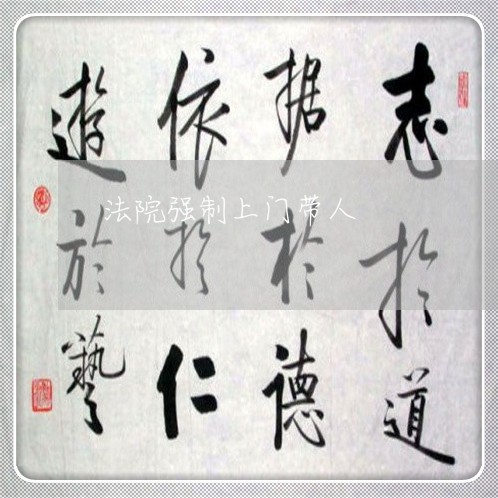 志於道
据於德
依於仁
遊於藝
法院强制上门带人